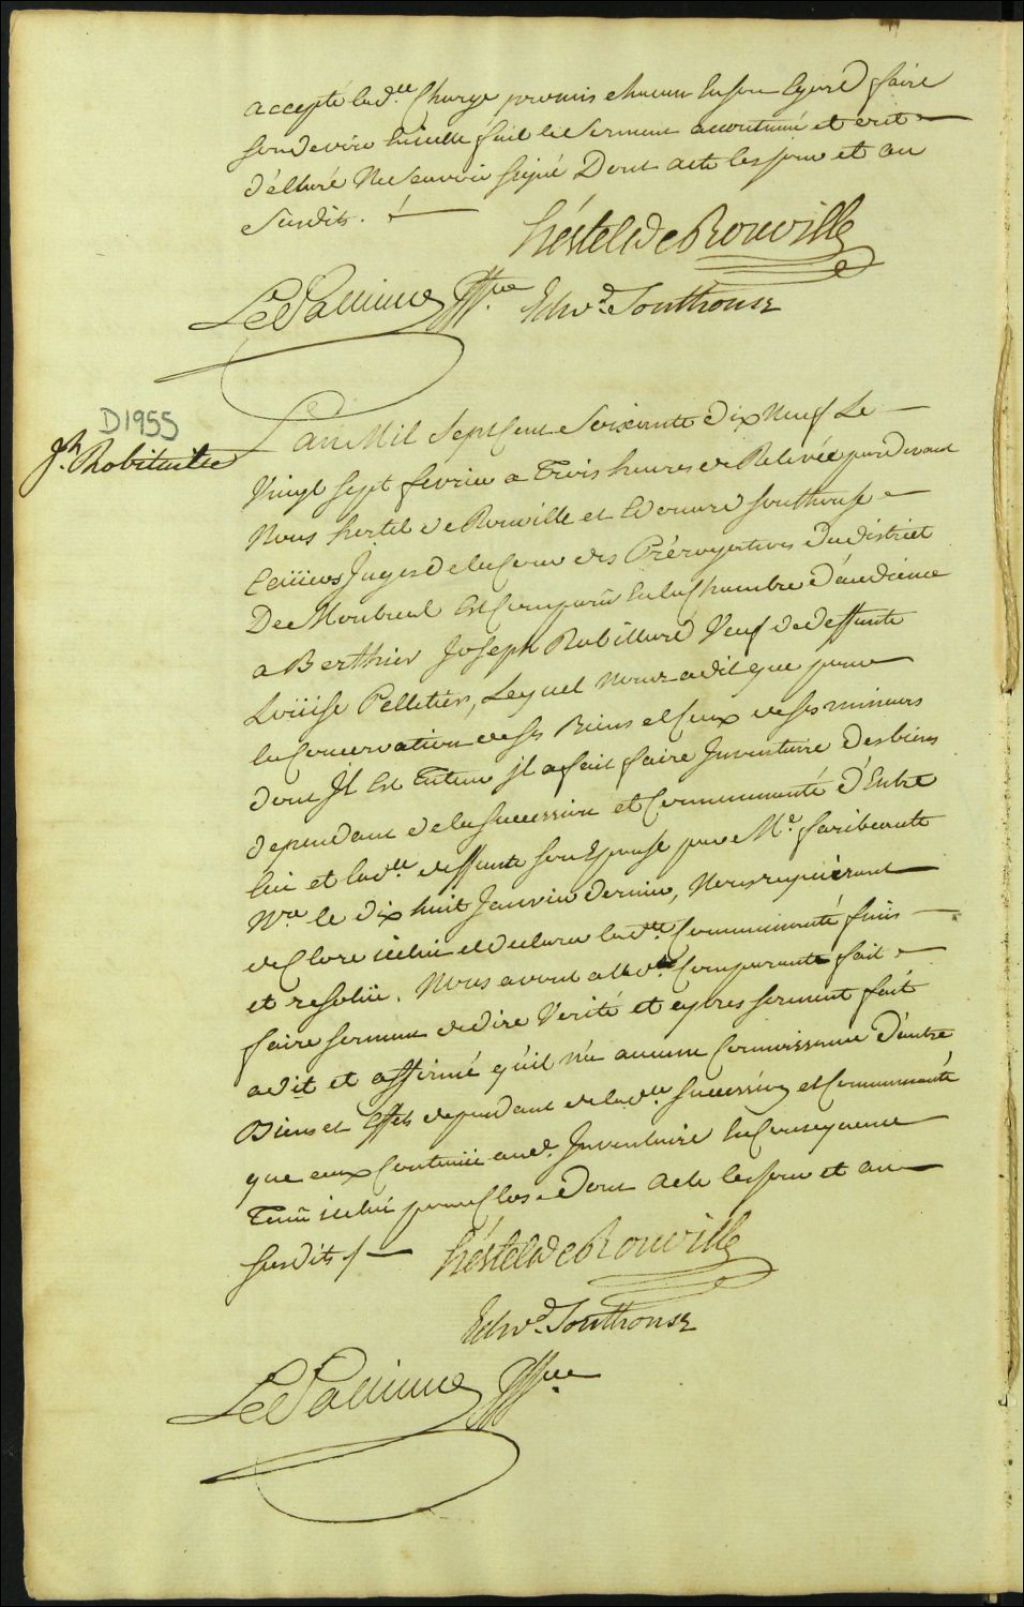 accepté lad.ee Charge promis chacun En son Egard faire
son devoir En icelle fait le Serment accoutumé et ont
déclaré Ne Scavoir Signé Dont acte les jour et an
Susdits.
héstel de Rouville
LeSalinne Gffier Edwd. Southouse
D1955
Jh. Robitaille
L'an Mil Sept Cent Soixante dix Neuf Le
Vingt Sept fevrier a Trois heures de Relevée pardevant
Nous hertel de Rouville et Edouard Southouse
Ecüiers Juges De la Cour des Prérogatives du district
De Montreal Est Comparû En la Chambre d'audience
a Berthier Joseph Robillard Veuf de deffunte
Loüise Pelletier, Lequel Nous a dit que pour
la Conservation de ses Biens et Ceux de ses mineurs
dont Jl Est Tuteur jl a fait faire Jnventaire Des biens
dependant de la Succession et Communauté d'Entre
lui et lad.te deffunte son Epouse par Me. faribeault
Nre. le dix huit Janvier dernier, Nous requérant
de Clore icelui et declarer lad.te Communauté finis
et resolüe. Nous avons aud. Comparante fait
faire serment de dire Verité et apres serment fait
a dit et affirmé qu'il n'a aucune Connoissance d'autre
Biens et Effets dependant de lad.te Succession et Communauté
que ceux Contenüe aud. Jnventaire En Consequence
Tenu icelui pour Clos. Dont Acte les jour et an
susdits /
héstel de Rouville
Edwd. Southouse
LeSalinne Gffier